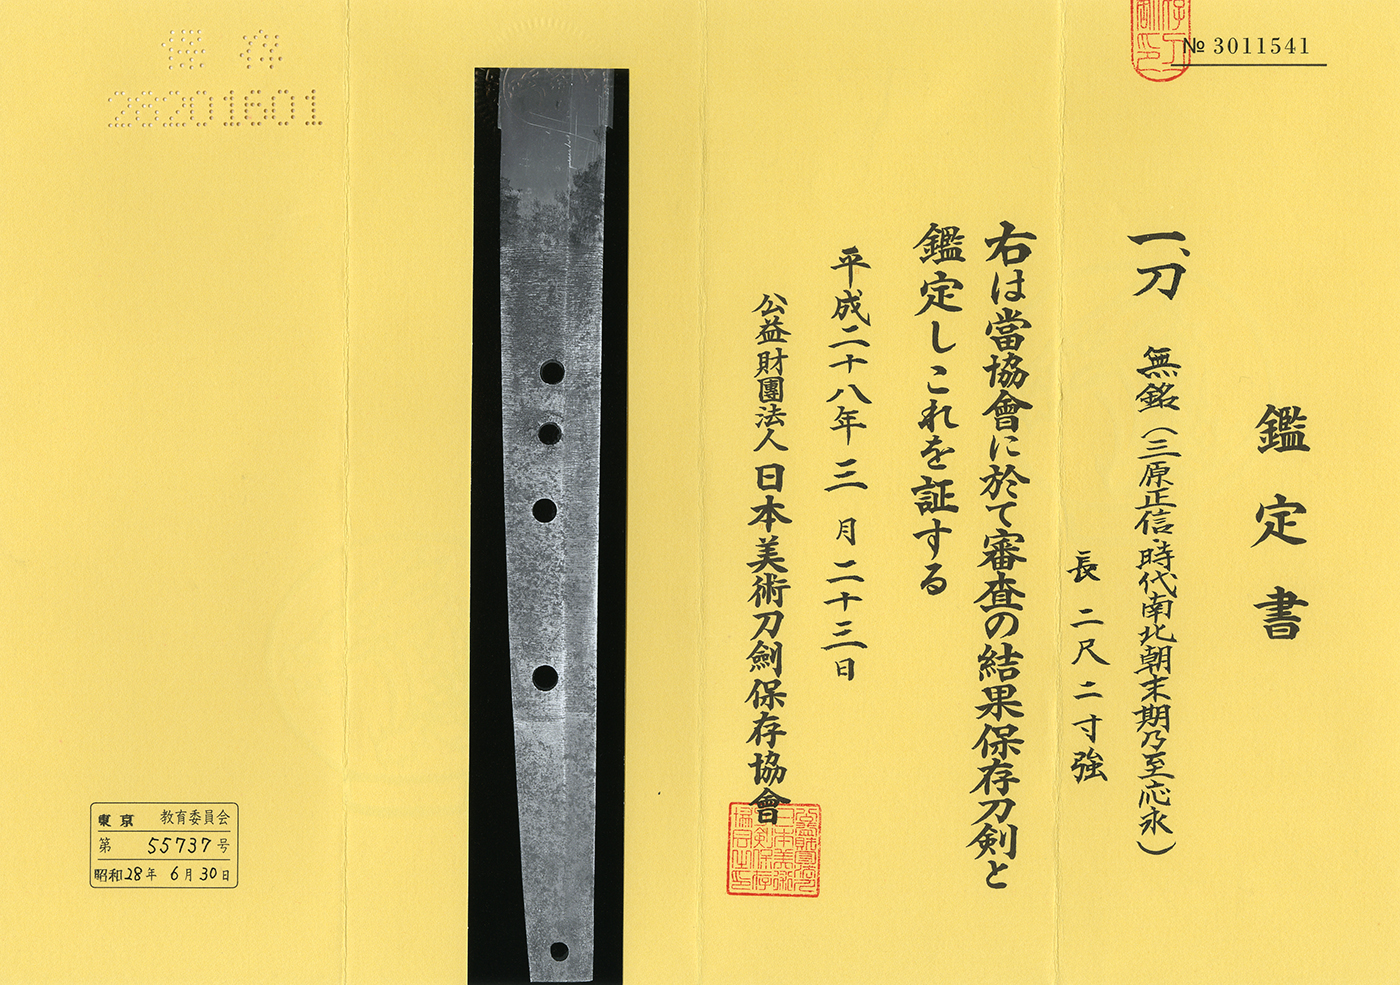 № 3011541
鑑定書
一、刀 無銘（三原正信・時代南北朝末期乃至応永）
長二尺二寸強
右は當協會に於て審査の結果保存刀剣と
鑑定しこれを証する
平成二十八年三月二十三日
公益財團法人日本美術刀劍保存協會
保存
28201601
東京 教育委員会
第 55737 号
昭和28年 6月30日